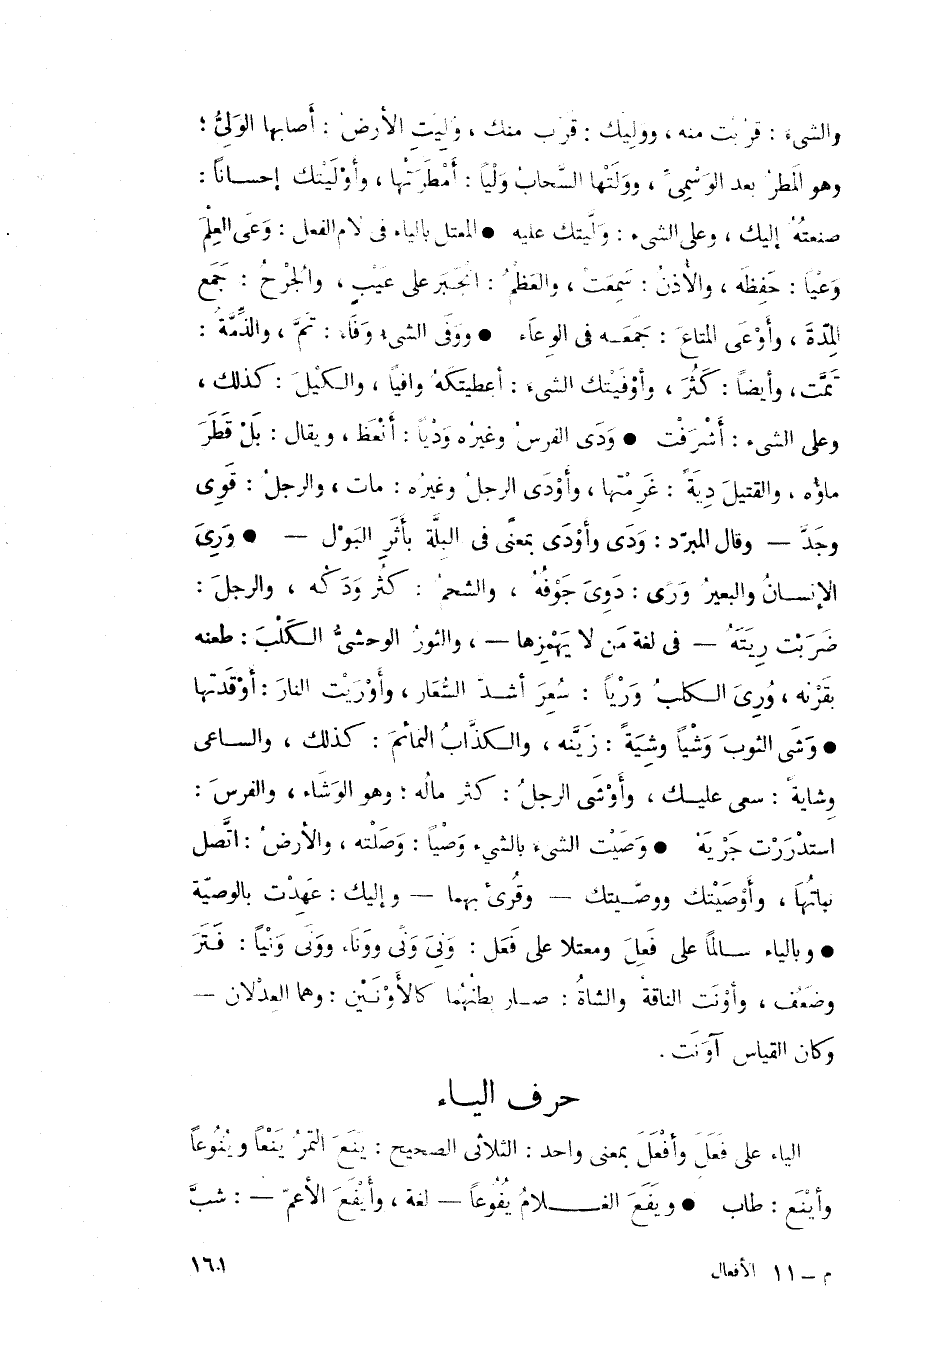 والشىءَ : قَرُبْت منه ، ووَلِيَك : قَرُب منك ، وَلِيَتِ الأرضُ : أصابها الوَلِىُّ ؛
وهو المطرُ بعد الوَسْمِىِّ ، ووَلَتْها السَّحابُ وَلْياً : أَمْطَرَتْها ، وأَوْلَيْتك إحسـاناً :
صنعتهُ إليك ، وعلى الشىء : وَلَّيتك عليه ● المعتل بالياء فى لام الفعل : وَعَى العِلْمَ
وَعْياً : حَفِظَه ، والأُذنُ : سَمِعَتْ ، والعَظْمُ : انْجَبَر على عَيْبٍ ، والجُرْحُ : جَمَع
المِدّةَ ، وأَوْعَى المتاعَ : جَمَعَـه فى الوِعَاء ● ووَفَى الشىء وَفَاء : تَمَّ ، والذِّمَّةُ :
تَمَّت ، وأيضاً : كَثُرَ ، وأَوْفَيْتك الشىءَ : أعطيتكَهُ وافياً ، والـكَيْلَ : كذلك ،
وعلى الشىء : أَشْرَفْت ● وَدَى الفرسُ وغيرُه وَدْياً : أَنْعَظ ، ويقال : بَلْ قَطَرَ
ماؤه ، والقتيلَ دِيَةً : غَرِمْتها ، وأَوْدَى الرجلُ وغيرُه : مات ، والرجلُ : قَوِى
وجَدَّ — وقال المبرّد : وَدَى وأَوْدَى بمعنًى فى البِلَّة بأَثَرِ البَوْل — ● وَرِىَ
الإنسـانُ والبعيرُ وَرًى : دَوِىَ جَوْفُهُ ، والشحمُ : كثُر وَدَكُه ، والرجلَ :
ضَرَبْت رِيَتَهُ — فى لغة مَن لا يَهْمِزها — ، والثورُ الوحشىُّ الـكَلْبَ : طعنه
بقَرْنه ، وُرِىَ الـكلبُ وَرْياً : سُعِرَ أشـدّ السُّعَار ، وأَوْرَيْت النارَ : أَوْقَدتها
● وَشَى الثوبَ وَشْياً وشِيَةً : زَيَّنه ، والـكذَّابُ النمائمَ : كذلك ، والسـاعى
وِشايةً : سعى عليـك ، وأَوْشَى الرجلُ : كثر مالُه ؛ وهو الوَشَاء ، والفرسَ :
استدْرَرْت جَرْيَهُ ● وَصَيْت الشىءَ بالشىءِ وَصْياً : وَصَلْته ، والأرضُ : اتَّصل
نباتُها ، وأَوْصَيْتك ووصّـيتك — وقُرئ بهما — وإليك : عَهِدْت بالوصيّة
● وبالياء سـالماً على فَعِلَ ومعتلا على فَعَل : وَنِىَ وَنًى ووَنَاء ووَنَى وَنْياً : فَـتَرَ
وضَعُف ، وأَوْنَت الناقةُ والشاةُ : صـار بطنُهما كالأَوْنَـيْن : وهما العِدْلان —
وكان القياس آوَنَت .
حرف اليـاء
الياء على فَعَلَ وأَفْعَلَ بمعنى واحد : الثلاثى الصحيح : يَنَعَ الثمرُ يَنْعاً ويُنُوعاً
وأَيْنَع : طاب ● ويَفَعَ الغــلامُ يُفُوعاً — لغة ، وأَيْفَعَ الأعمّ — : شبَّ
م — ١١ الأفعال
١٦١